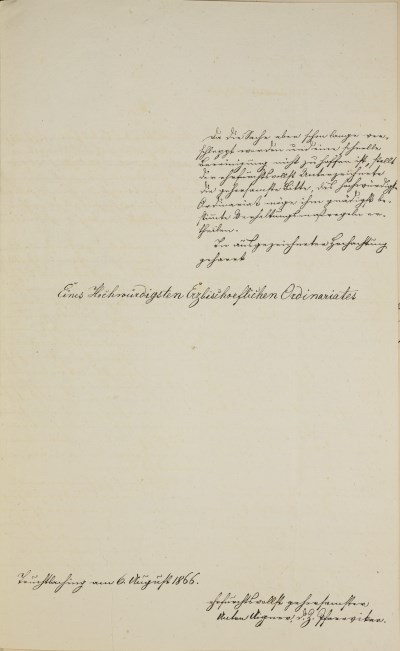 Da die Sache aber schon lange ver-
schleppt worden und eine schnelle
Bereinigung nicht zu hoffen ist, stellt
die ehrfurchtsvollst Unterzeichnete
die gehorsamste Bitte, das Hochwürdigste
Ordinariat möge ihm gnädigst be-
stimmte Verhaltungsmaßregeln er-
theilen.
In ausgezeichneter Hochachtung
geharrt
Eines Hochwürdigsten Erzbischoeflichen Ordinariates
Truchtlaching am 6. August 1866.
ehrfurchtsvollst gehorsamster
Anton Aigner, d. Z. Pfarrvikar.